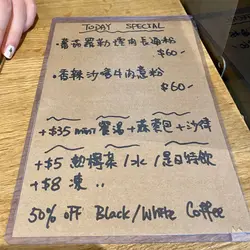 TODAY SPECIAL
·蕃茄羅勒烤肉長通粉
$60-
·香辣沙嗲牛肉意粉
$60-
+$35 餐湯+蒜蓉包+沙律
+$5 熱檸茶/水/是日特飲
+$8 凍 〃
50% OFF Black/White Coffee